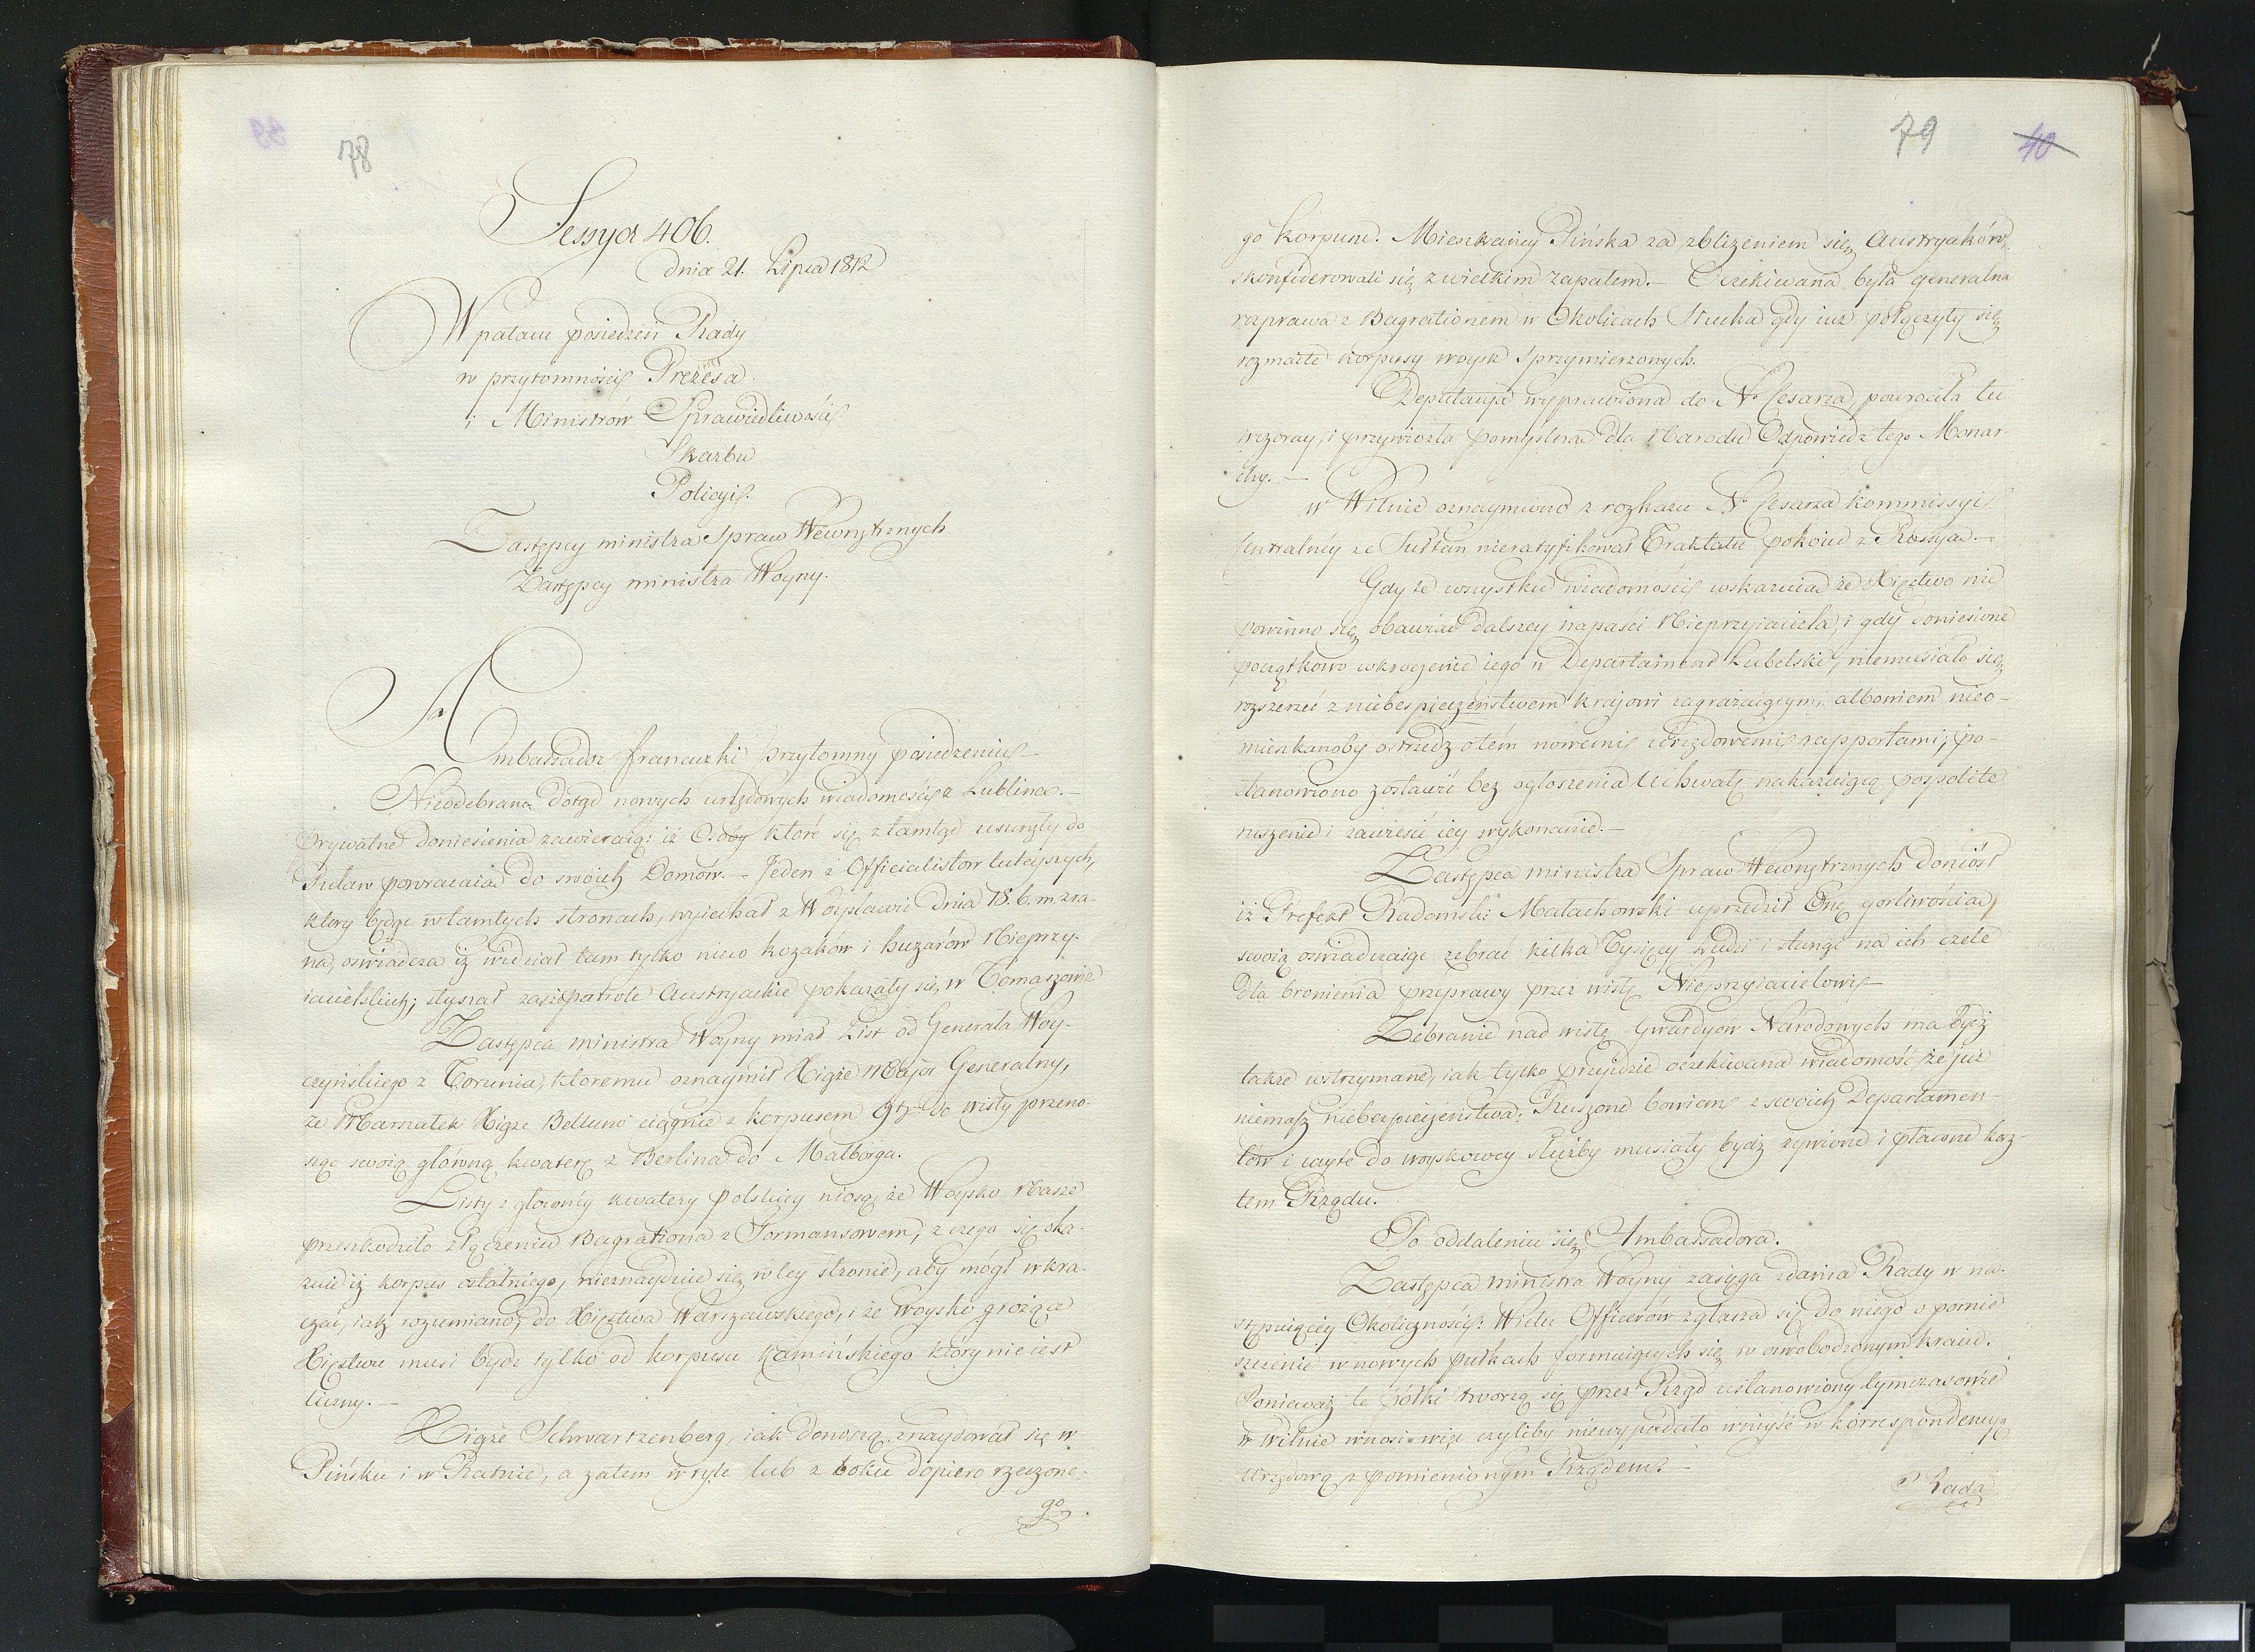 78
Sessya 406.
dnia 21. Lipca 1812
W pałacu posiedzeń Rady
w przytomności Prezesa
i Ministrów Sprawiedliwości
Skarbu
Policyi.
Zastępcy ministra Spraw Wewnętrznych
Zastępcy ministra Woyny.
Ambassador francuzki przytomny posiedzeniu —
Nieodebrano dotąd nowych urzędowych wiadomości z Lublina. —
Prywatne doniesienia zawieraią: iż Osoby które się z tamtąd usunęły do
Puław powracaią do swoich Domów. — Jeden z Officialistów tuteyszych,
który będąc w tamtych stronach, wyiechał z Woysławic dnia 18. b. m. zra-
na, oświadcza iż widział tam tylko nieco kozaków i huzarów Nieprzy-
iacielskich; słyszał zaś że patrole Austryackie pokazały się w Tomaszowie
Zastępca ministra Woyny miał List od Generała Woy-
czyńskiego z Torunia, któremu oznaymił Xiąże Major Generalny,
że Marszałek Xiąże Belluno ciągnie z korpusem 9tym do wisły przeno-
sząc swoią główną kwaterę z Berlina do Malborga.
Listy z głównéy kwatery polskiey niosą, że Woysko Nasze
przeszkodziło złączeniu Bagrationa z Tormansowem, z czego się oka-
zuie iż korpus ostatniego, nieznayduie się w tey stronie, aby mógł wkra-
czać, iak rozumiano, do Xięztwa Warszawskiego, i że woysko grożące
Xięztwu musi bydź tylko od korpusu Kamińskiego który nie iest
liczny. —
Xiąże Schwartzenberg, iak donoszą znaydował się w
Pińsku i w Ratnie, a zatem w tyle lub z boku dopiero rzeczone-
go
79
40
go korpusu. Mieszkańcy Pińska za zbliżeniem się Austryaków,
skonfederowali się z wielkim zapałem. — Oczekiwana była generalna
rozprawa z Bagrationem w Okolicach Słucka gdy iuż połączyły się
rozmaite korpusy woysk sprzymierzonych.
Deputacya wyprawiona do N. Cesarza, powróciła tu
wczoray, i przywiozła pomyślną dla Narodu Odpowiedź tego Monar-
chy. —
w Wilnie oznaymiono z rozkazu N. Cesarza kommissyi
Centralnéy że Sułtan nieratyfikował Traktatu pokoiu z Rossyą. —
Gdy te wszystkie wiadomości wskazuią że Xięztwo nie
powinno się obawiać dalszey napaści Nieprzyiaciela, i gdy doniesione
początkowo wkroczenie iego w Departament Lubelski, niemusiało się
rozszerzeć z niebespieczeństwem krajowi zagrażaiącym, albowiem nieo-
mieszkanoby ostrzedz o tém nowemi urzędowemi rapportami; po-
stanowiono zostawić bez ogłoszenia Uchwałę nakazuiącą pospolite
ruszenie i zawiesić iey wykonanie. —
Zastępca ministra Spraw Wewnętrznych doniósł
iż Prefekt Radomski Małachowski uprzedził Onę gorliwością
swoią oświadczaiąc zebrać kilka Tysięcy Ludzi i stanąć na ich czele
dla bronienia przeprawy przez wisłę Nieprzyiacielowi —
Zebranie nad wisłę Gwardyów Narodowych ma bydź
także wstrzymane, iak tylko przyidzie oczekiwana wiadomość że już
niemasz niebezpieczeństwa: Ruszone bowiem z swoich Departamen-
tów i użyte do woyskowey służby musiały bydź żywione i płacone kosz-
tem Rządu.
Po oddaleniu się Ambassadora.
Zastępca ministra Woyny zasięga zdania Rady w na-
stępuiącey Okoliczności: Wielu Officerów zgłasza się do niego o pomie-
szczenie w nowych pułkach formuiących się w oswobodzonym kraiu.
Ponieważ te półki tworzą się przez Rząd ustanowiony tymczasowie
w Wilnie wnosi więc czyliby niewypadało wniyść w korrespondencyą
Urzędową z pomienionym Rządem? —
Rada